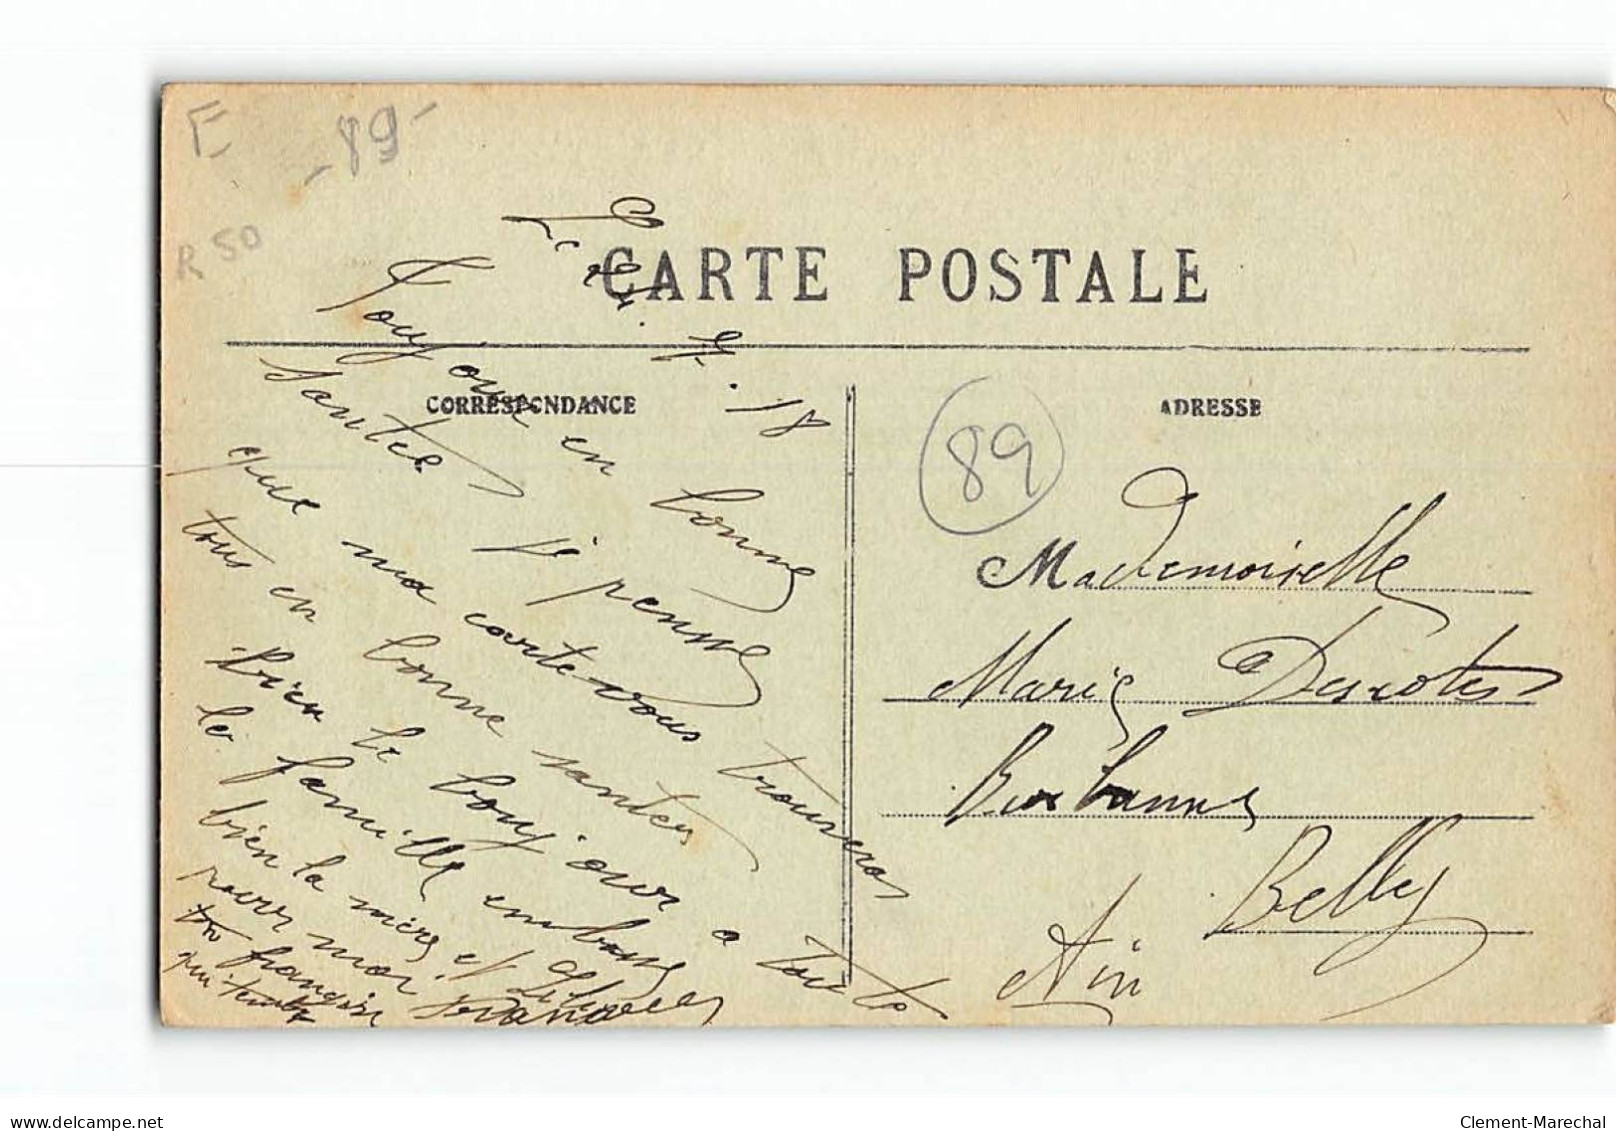 E -89-
R 50
CARTE POSTALE
CORRESPONDANCE
ADRESSE
89
Le 24.7.18
Toujour en bonne
santee je penne
que ma carte vous trouveras
tous en bonne santer
bien le boujour a toute
la famille embrasse
bien la mère et
pour moi
ton françois
qui
Mademoiselle
Marie Descotes
Belley
Ain
delcampe.net
Clement-Marechal